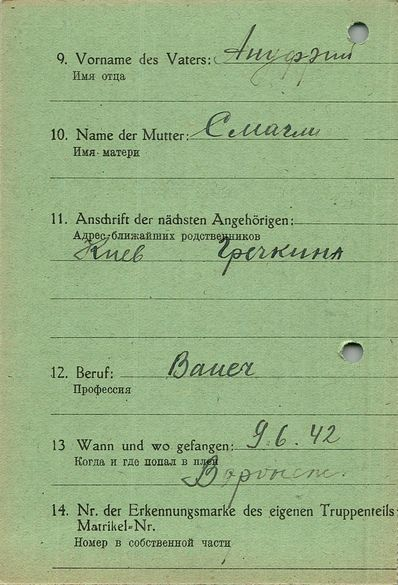 9. Vorname des Vaters: Ануфрий
Имя отца
10. Name der Mutter: Смагли
Имя матери
11. Anschrift der nächsten Angehörigen:
Адрес ближайших родственников
Киев Гречкина
12. Beruf: Bauer
Профессия
13 Wann und wo gefangen: 9.6.42
Когда и где попал в плен
14. Nr. der Erkennungsmarke des eigenen Truppenteils
Matrikel-Nr.
Номер в собственной части